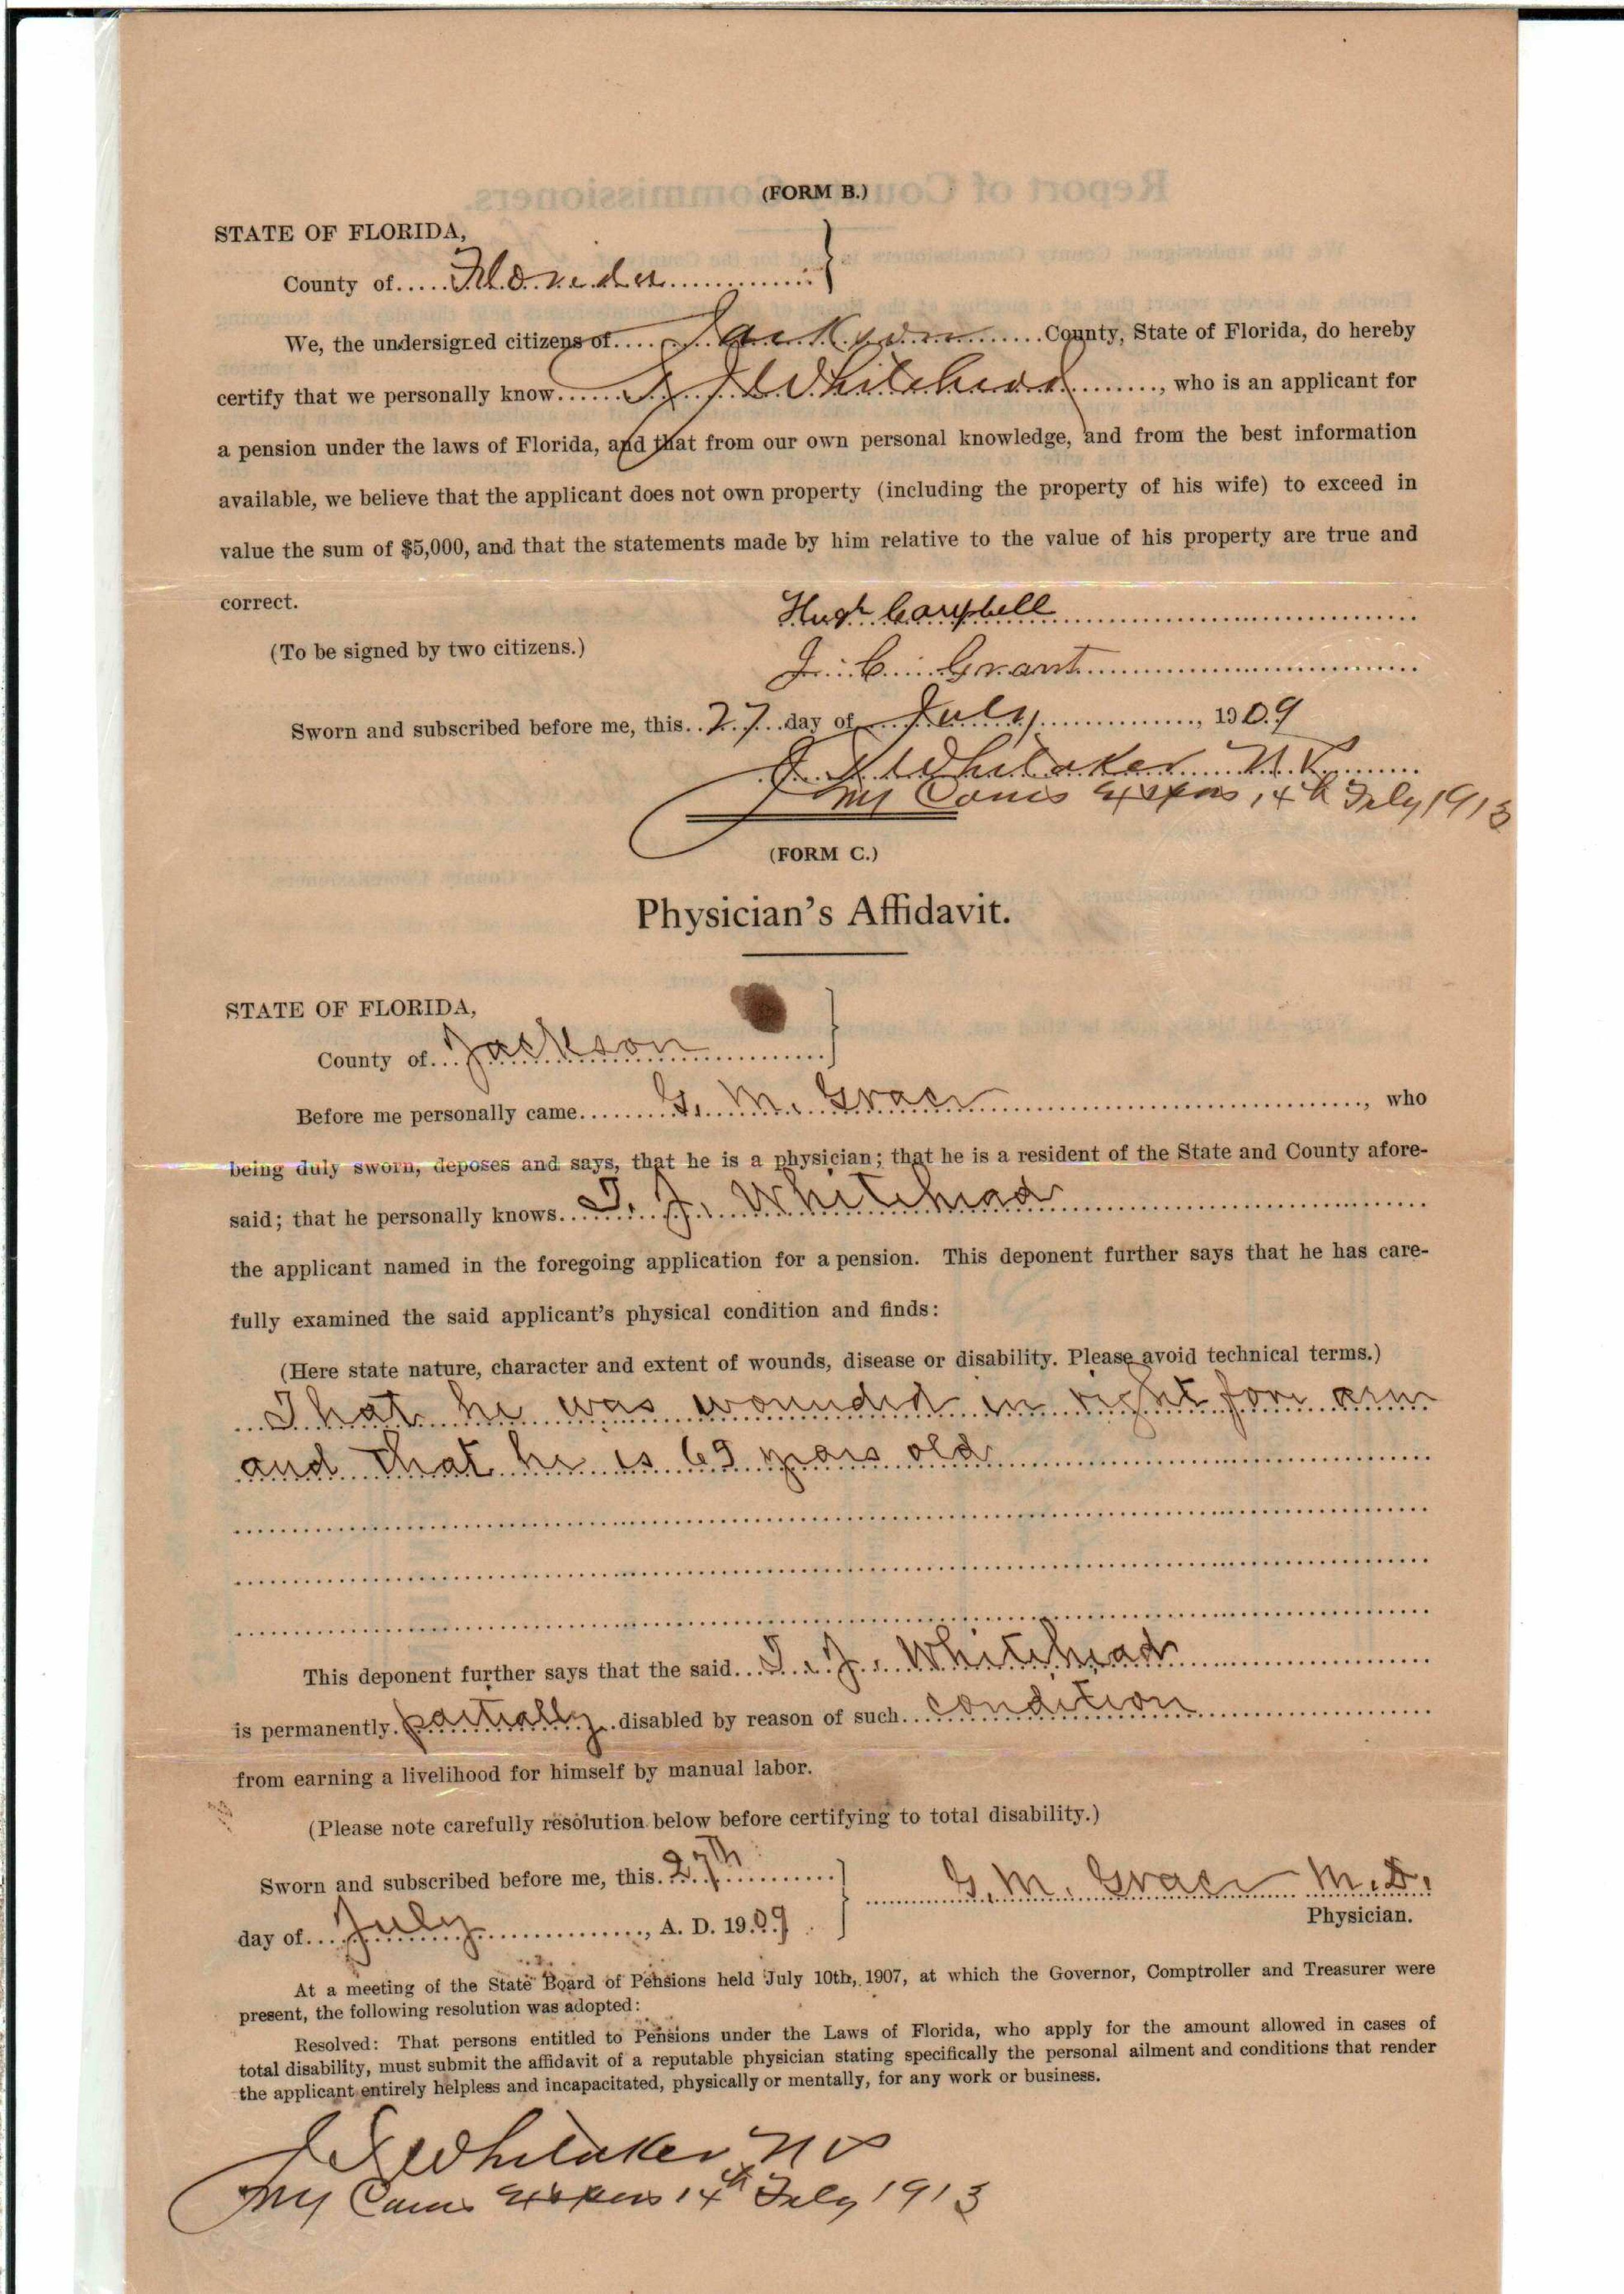 (FORM B.)
STATE OF FLORIDA,
County of Florida
We, the undersigned citizens of Jackson County, State of Florida, do hereby
certify that we personally know T J Whitehead, who is an applicant for
a pension under the laws of Florida, and that from our own personal knowledge, and from the best information
available, we believe that the applicant does not own property (including the property of his wife) to exceed in
value the sum of $5,000, and that the statements made by him relative to the value of his property are true and
correct.
Hugh Campbell
(To be signed by two citizens.)
J. C. Grant
Sworn and subscribed before me, this 27 day of July, 1909
Whitaker N.P.
My Comis Expires 14th July 1913
(FORM C.)
Physician's Affidavit.
STATE OF FLORIDA,
County of Jackson
Before me personally came G. M. Grace, who
being duly sworn, deposes and says, that he is a physician; that he is a resident of the State and County afore-
said; that he personally knows T. J. Whitehead
the applicant named in the foregoing application for a pension. This deponent further says that he has care-
fully examined the said applicant's physical condition and finds:
(Here state nature, character and extent of wounds, disease or disability. Please avoid technical terms.)
That he was wounded in right fore arm
and that he is 65 years old
This deponent further says that the said T. J. Whitehead
is permanently partially disabled by reason of such condition
from earning a livelihood for himself by manual labor.
(Please note carefully resolution below before certifying to total disability.)
Sworn and subscribed before me, this 27th
G. M. Grace M.D.
Physician.
day of July, A. D. 1909
At a meeting of the State Board of Pensions held July 10th, 1907, at which the Governor, Comptroller and Treasurer were
present, the following resolution was adopted:
Resolved: That persons entitled to Pensions under the Laws of Florida, who apply for the amount allowed in cases of
total disability, must submit the affidavit of a reputable physician stating specifically the personal ailment and conditions that render
the applicant entirely helpless and incapacitated, physically or mentally, for any work or business.
Whitaker N P
My Comis Expires 14th July 1913